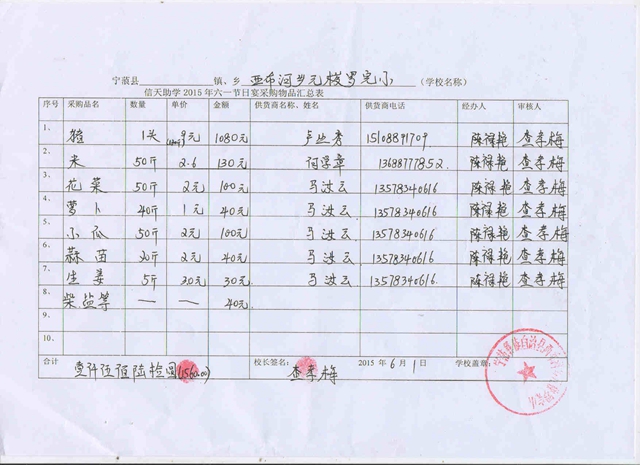 宁蒗县 镇、乡 西布河乡元梭罗完小 (学校名称)
信天助学 2015 年六一节日宴采购物品汇总表
序号 采购品名 数量 单价 金额 供货商名称、姓名 供货商电话 经办人 审核人
1. 猪 1头 9元 1080元 15108891709 陈禄艳 查李梅
2. 米 50斤 2.6 130元 13688777852 陈禄艳 查李梅
3. 花菜 50斤 2元 100元 马汝云 13578340616 陈禄艳 查李梅
4. 萝卜 40斤 1元 40元 马汝云 13578340616 陈禄艳 查李梅
5. 小瓜 50斤 2元 100元 马汝云 13578340616 陈禄艳 查李梅
6. 蒜苗 20斤 2元 40元 马汝云 13578340616 陈禄艳 查李梅
7. 生姜 5斤 30元 马汝云 13578340616 陈禄艳 查李梅
8. 柴.盐等 — — 40元
9.
10.
合计 壹仟伍佰陆拾圆(1560.00) 校长签名: 查李梅 2015 年 6 月 1 日 学校盖章: